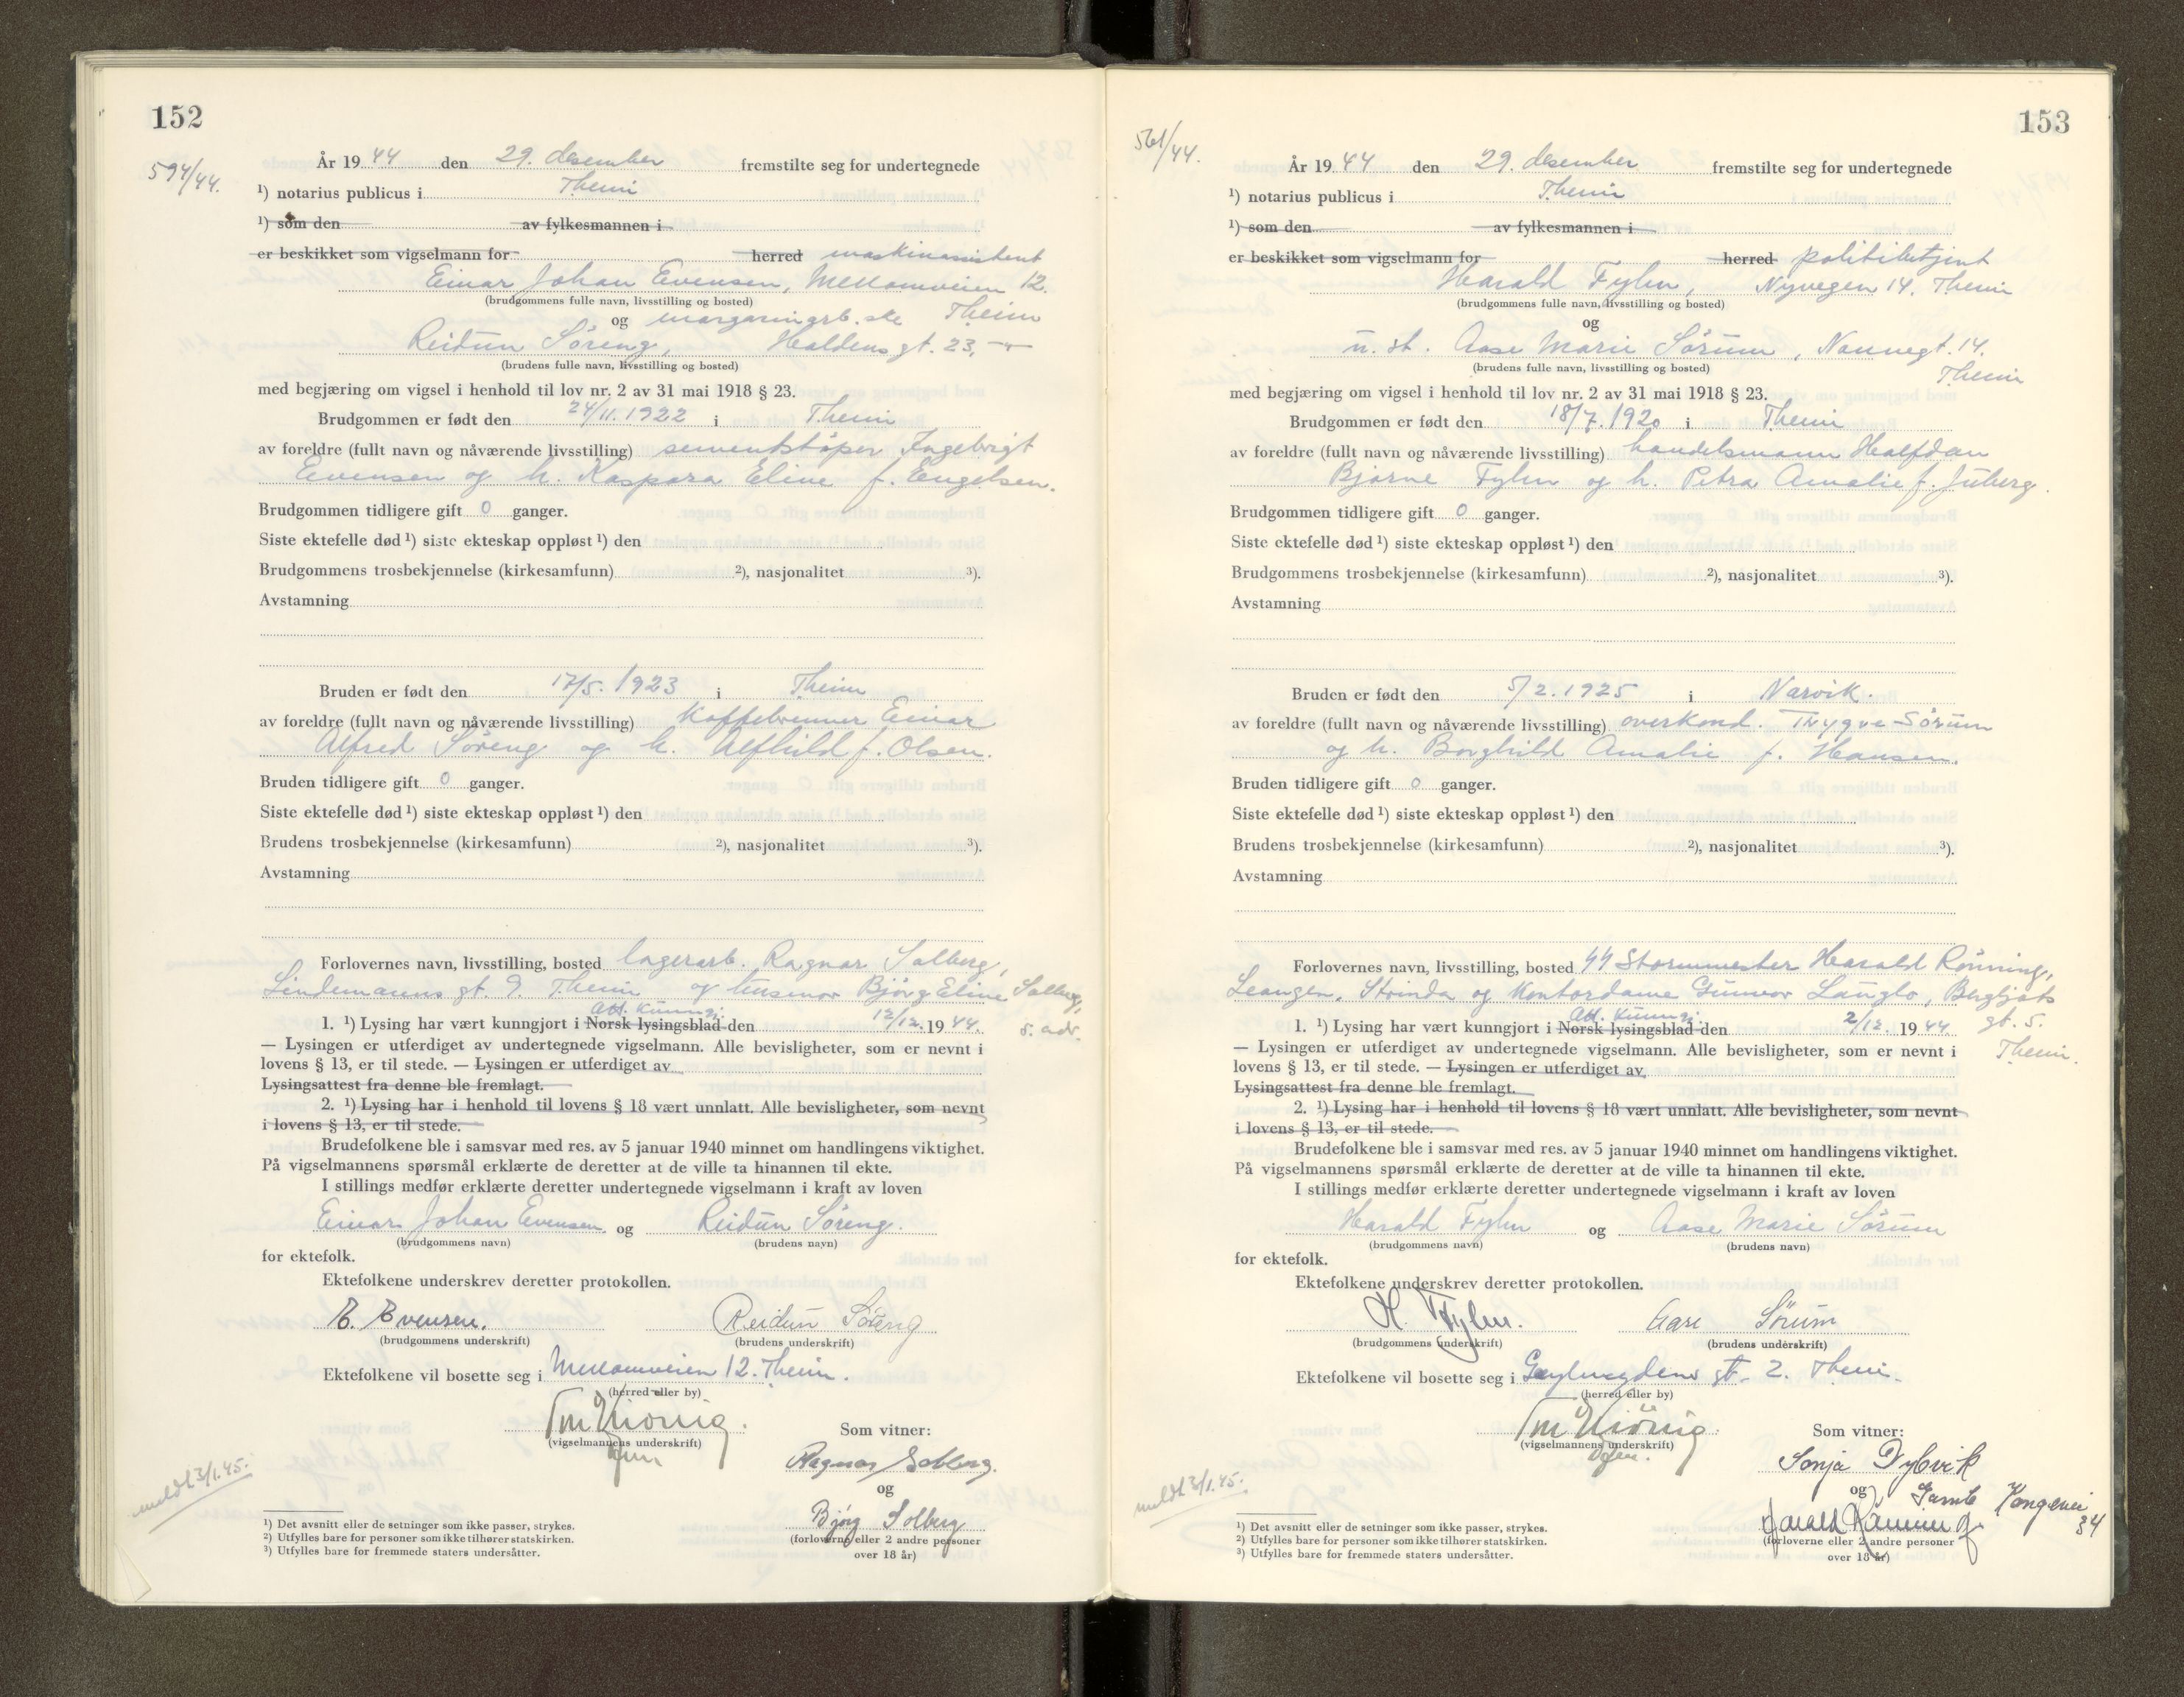 152
594/44.
År 19 44 den 29. desember fremstilte seg for undertegnede
¹) notarius publicus i Theim
¹) som den av fylkesmannen i
er beskikket som vigselmann for herred maskinassistent
Einar Johan Evensen, Mellomveien 12.
(brudgommens fulle navn, livsstilling og bosted)
og margarinarb.ske Theim
Reidun Söreng, Haldens gt. 23, —"—
(brudens fulle navn, livsstilling og bosted)
med begjæring om vigsel i henhold til lov nr. 2 av 31 mai 1918 § 23.
Brudgommen er født den 24/11.1922 i Theim
av foreldre (fullt navn og nåværende livsstilling) sementstöper Ingebrigt
Evensen og h. Kaspara Eline f. Engelsen.
Brudgommen tidligere gift 0 ganger.
Siste ektefelle død ¹) siste ekteskap oppløst ¹) den
Brudgommens trosbekjennelse (kirkesamfunn) ²), nasjonalitet ³).
Avstamning
Bruden er født den 17/5. 1923 i Theim
av foreldre (fullt navn og nåværende livsstilling) kaffebrenner Einar
Alfred Söreng og h. Alfhild f. Olsen.
Bruden tidligere gift 0 ganger.
Siste ektefelle død ¹) siste ekteskap oppløst ¹) den
Brudens trosbekjennelse (kirkesamfunn) ²), nasjonalitet ³).
Avstamning
Forlovernes navn, livsstilling, bosted lagerarb. Ragnar Solberg,
Lindemanns gt. 9. Theim og husmor Bjørg Eline Solberg,
s. adr.
Att. kunngj.
1. ¹) Lysing har vært kunngjort i Norsk lysingsblad den 12/12. 19 44.
— Lysingen er utferdiget av undertegnede vigselmann. Alle bevisligheter, som er nevnt i
lovens § 13, er til stede. — Lysingen er utferdiget av
Lysingsattest fra denne ble fremlagt.
2. ¹) Lysing har i henhold til lovens § 18 vært unnlatt. Alle bevisligheter, som nevnt
i lovens § 13, er til stede.
Brudefolkene ble i samsvar med res. av 5 januar 1940 minnet om handlingens viktighet.
På vigselmannens spørsmål erklærte de deretter at de ville ta hinannen til ekte.
I stillings medfør erklærte deretter undertegnede vigselmann i kraft av loven
Einar Johan Evensen og Reidun Söreng.
(brudgommens navn) (brudens navn)
for ektefolk.
Ektefolkene underskrev deretter protokollen.
E. Evensen. Reidun Söreng
(brudgommens underskrift) (brudens underskrift)
Ektefolkene vil bosette seg i Mellomveien 12. Theim.
(herred eller by)
(vigselmannens underskrift)
Som vitner:
Ragnar Solberg.
og
Bjørg Solberg
(forloverne eller 2 andre personer
over 18 år)
meldt 3/1.45.
¹) Det avsnitt eller de setninger som ikke passer, strykes.
²) Utfylles bare for personer som ikke tilhører statskirken.
³) Utfylles bare for fremmede staters undersåtter.
153
561/44.
År 19 44 den 29. desember fremstilte seg for undertegnede
¹) notarius publicus i Theim
¹) som den av fylkesmannen i
er beskikket som vigselmann for herred politibetjent
Harald Fylm, Nyvegen 14. Theim
(brudgommens fulle navn, livsstilling og bosted)
og
u. st. Aase Marie Sörum, Nannegt. 14.
(brudens fulle navn, livsstilling og bosted) Theim
med begjæring om vigsel i henhold til lov nr. 2 av 31 mai 1918 § 23.
Brudgommen er født den 18/7. 1920 i Theim
av foreldre (fullt navn og nåværende livsstilling) handelsmann Halfdan
Bjarne Fylm og h. Petra Amalie f. Juberg.
Brudgommen tidligere gift 0 ganger.
Siste ektefelle død ¹) siste ekteskap oppløst ¹) den
Brudgommens trosbekjennelse (kirkesamfunn) ²), nasjonalitet ³).
Avstamning
Bruden er født den 5/2.1925 i Narvik.
av foreldre (fullt navn og nåværende livsstilling) overkond. Trygve Sörum
og h. Borghild Amalie f. Hansen.
Bruden tidligere gift 0 ganger.
Siste ektefelle død ¹) siste ekteskap oppløst ¹) den
Brudens trosbekjennelse (kirkesamfunn) ²), nasjonalitet ³).
Avstamning
Forlovernes navn, livsstilling, bosted SS Stormmester Harald Rönning,
Leangen, Strinda og kontordame Gunvor Langlo, Bergljots
gt. 5.
Theim.
Att. kunngj.
1. ¹) Lysing har vært kunngjort i Norsk lysingsblad den 2/12. 19 44
— Lysingen er utferdiget av undertegnede vigselmann. Alle bevisligheter, som er nevnt i
lovens § 13, er til stede. — Lysingen er utferdiget av
Lysingsattest fra denne ble fremlagt.
2. ¹) Lysing har i henhold til lovens § 18 vært unnlatt. Alle bevisligheter, som nevnt
i lovens § 13, er til stede.
Brudefolkene ble i samsvar med res. av 5 januar 1940 minnet om handlingens viktighet.
På vigselmannens spørsmål erklærte de deretter at de ville ta hinannen til ekte.
I stillings medfør erklærte deretter undertegnede vigselmann i kraft av loven
Harald Fylm og Aase Marie Sörum
(brudgommens navn) (brudens navn)
for ektefolk.
Ektefolkene underskrev deretter protokollen.
H. Fylm. Aase Sörum
(brudgommens underskrift) (brudens underskrift)
Ektefolkene vil bosette seg i gt. 2. Theim.
(herred eller by)
(vigselmannens underskrift)
Som vitner:
Sonja Dybvik
og Gamle Kongevei
34
Harald Rönning
(forloverne eller 2 andre personer
over 18 år)
meldt 3/1.45.
¹) Det avsnitt eller de setninger som ikke passer, strykes.
²) Utfylles bare for personer som ikke tilhører statskirken.
³) Utfylles bare for fremmede staters undersåtter.